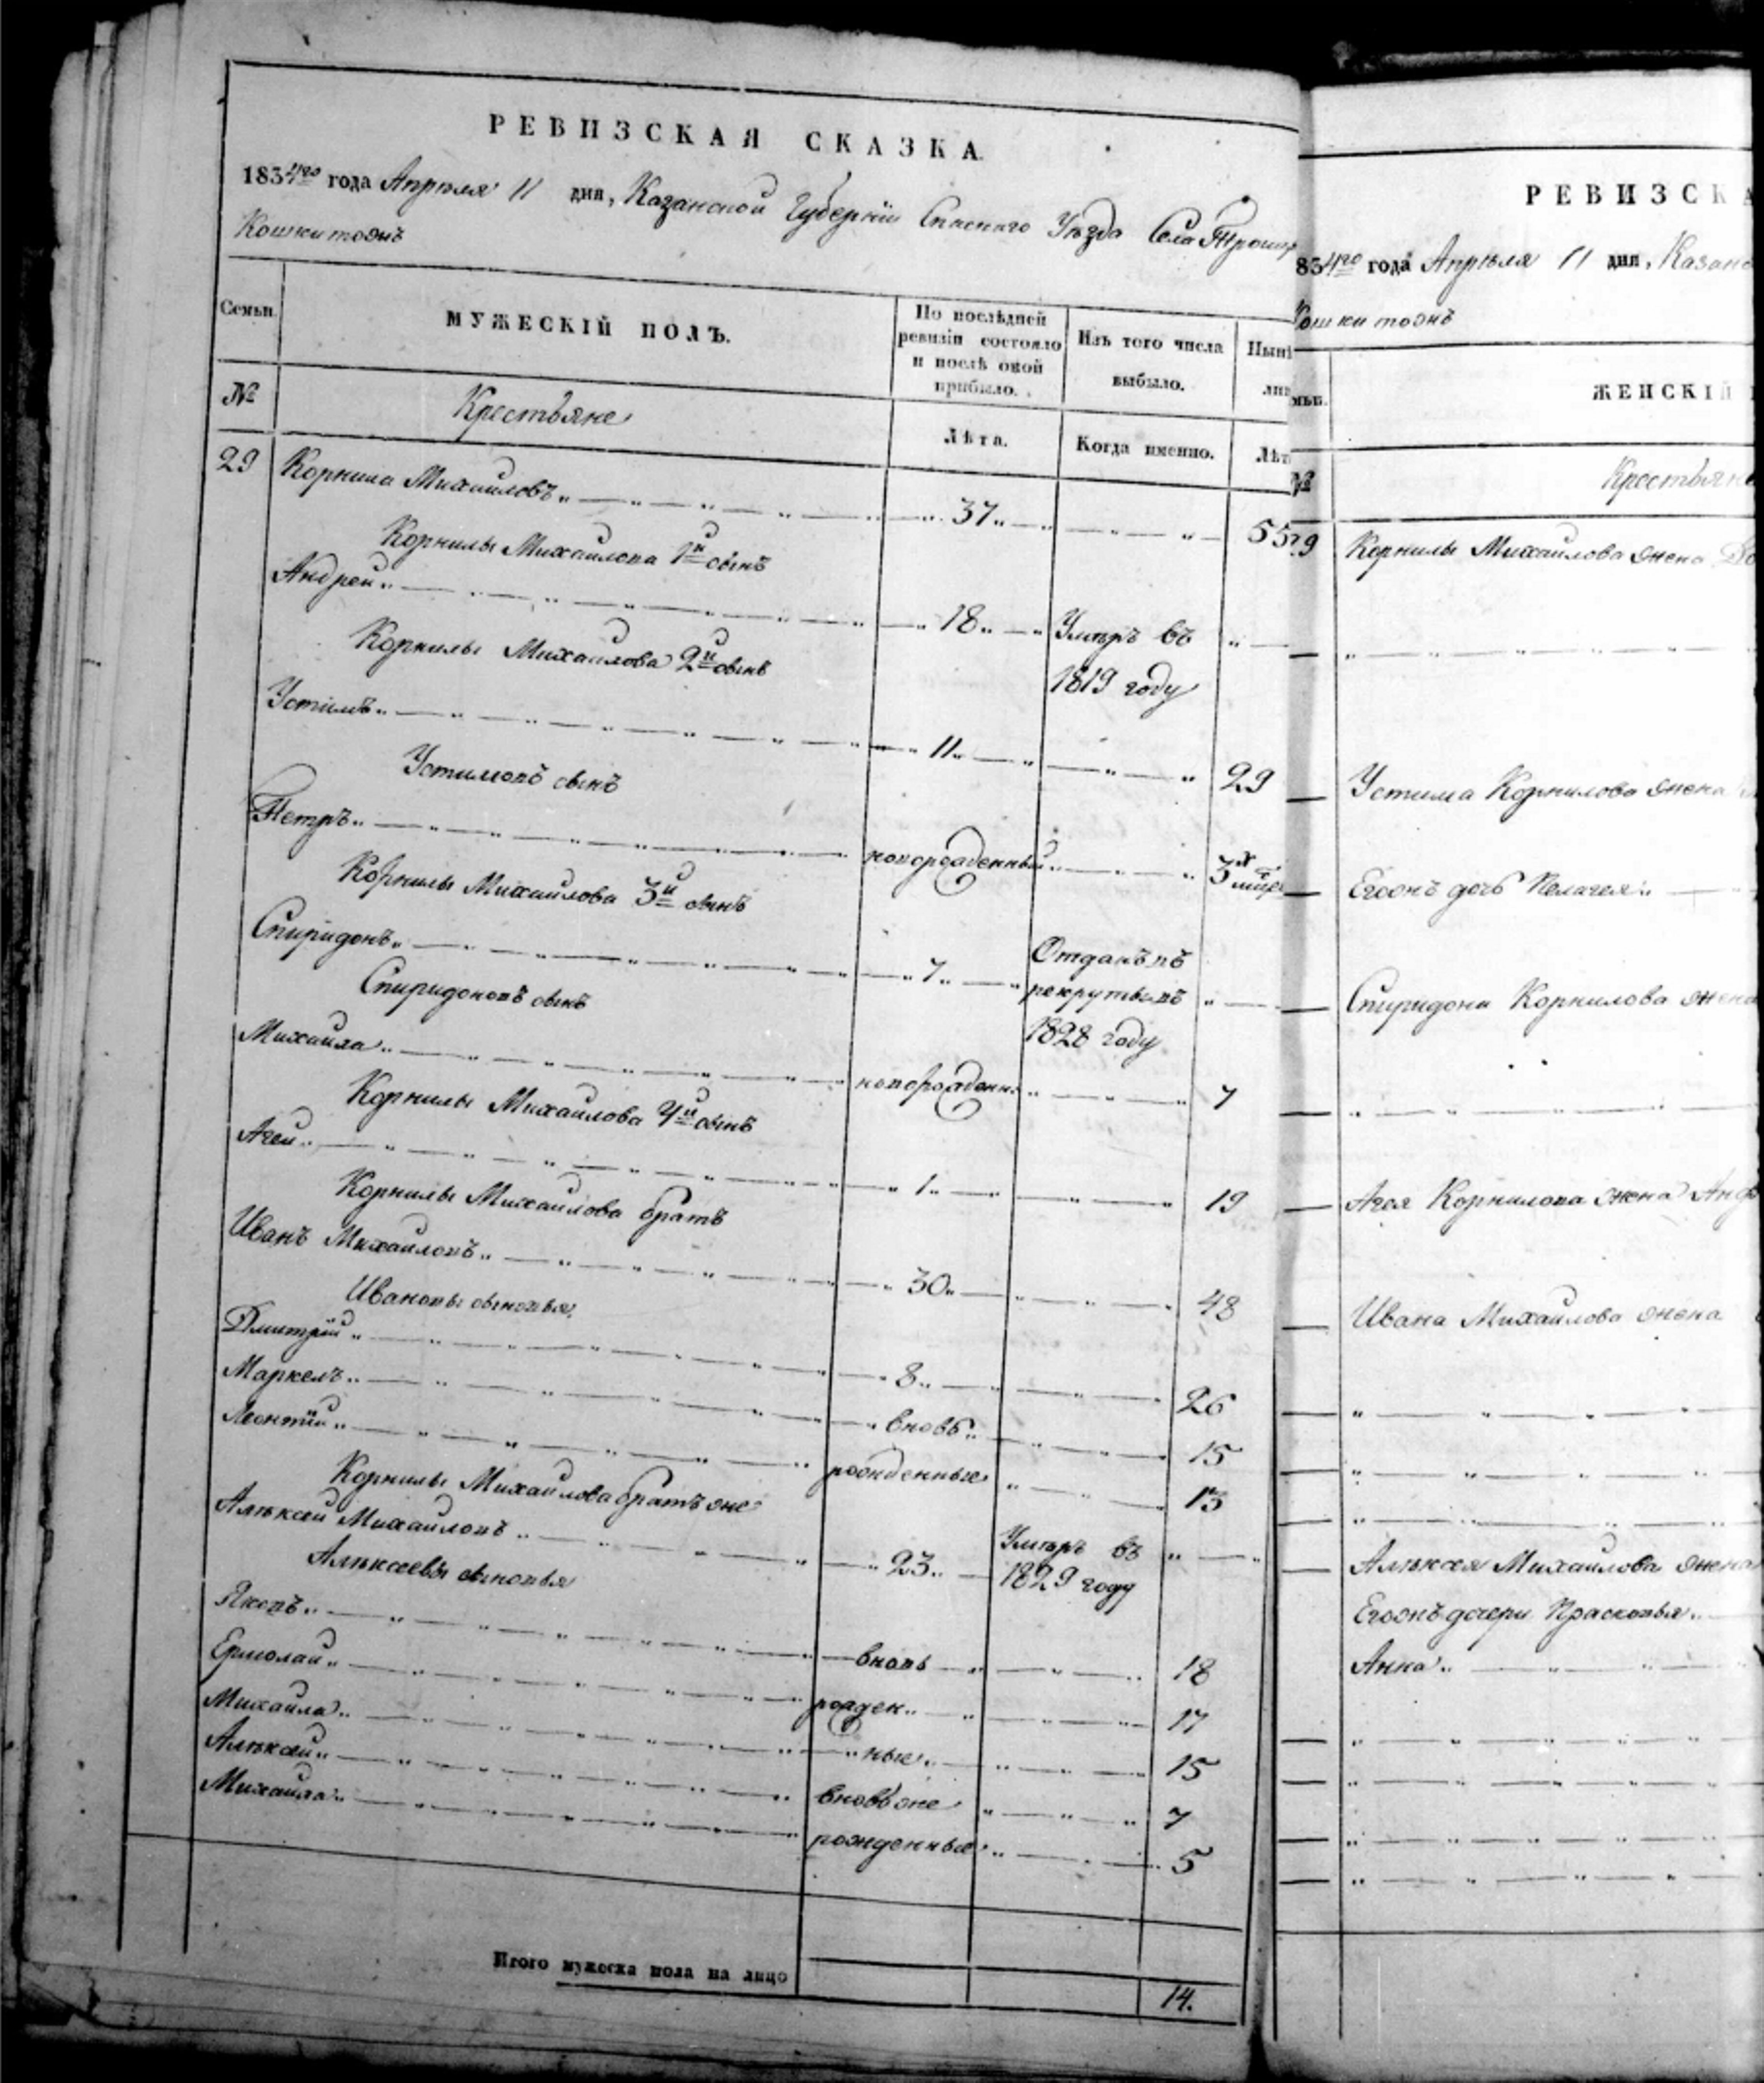 РЕВИЗСКАЯ СКАЗКА
1834го года Апреля 11 дня, Казанской Губернiи Спаскаго Уезда Села
Кошки тожъ
Семьи.
МУЖЕСКІЙ ПОЛЪ.
По послѣдней ревизіи состояло и послѣ оной прибыло.
Изъ того числа выбыло.
Нынѣ
№
Крестьяне
Лѣта.
Когда именно.
Лѣт
29 Корнила Михайловъ 37 55
Корнилы Михайлова 1й сынъ
Андрей 18 Умеръ въ
1819 году
Корнилы Михайлова 2й сынъ
Устимъ 11 29
Устимовъ сынъ
Петръ новорожденный 3х
Корнилы Михайлова 3й сынъ
Спиридонъ 7 Отданъ въ
рекруты въ
1828 году
Спиридоновъ сынъ
Михайла новорожденн 7
Корнилы Михайлова 4й сынъ
Агей 1 19
Корнилы Михайлова братъ
Иванъ Михайловъ 30 48
Ивановы сыновья
Дмитрій 8 26
Маркелъ вновь 15
Леонтій рожденные 13
Корнилы Михайлова братъ же
Алексей Михайловъ 23 Умеръ въ
1829 году
Алексеевы сыновья
Яковъ вновь 18
Ермолай рожден 17
Михайла ные 15
Алексей вновь же 7
Михайла рожденные 5
Итого мужеска пола на лицо 14.
РЕВИЗСКА
834го года Апреля 11 дня, Казанс
Кошки тожъ
ЖЕНСКІЙ
№
Крестьяне
29 Корнилы Михайлова жена
Устима Корнилова жена
Егожъ дочь Пелагея
Спиридона Корнилова жена
Агея Корнилова жена
Ивана Михайлова жена
Алексея Михайлова жена
Егожъ дочери Прасковья
Анна